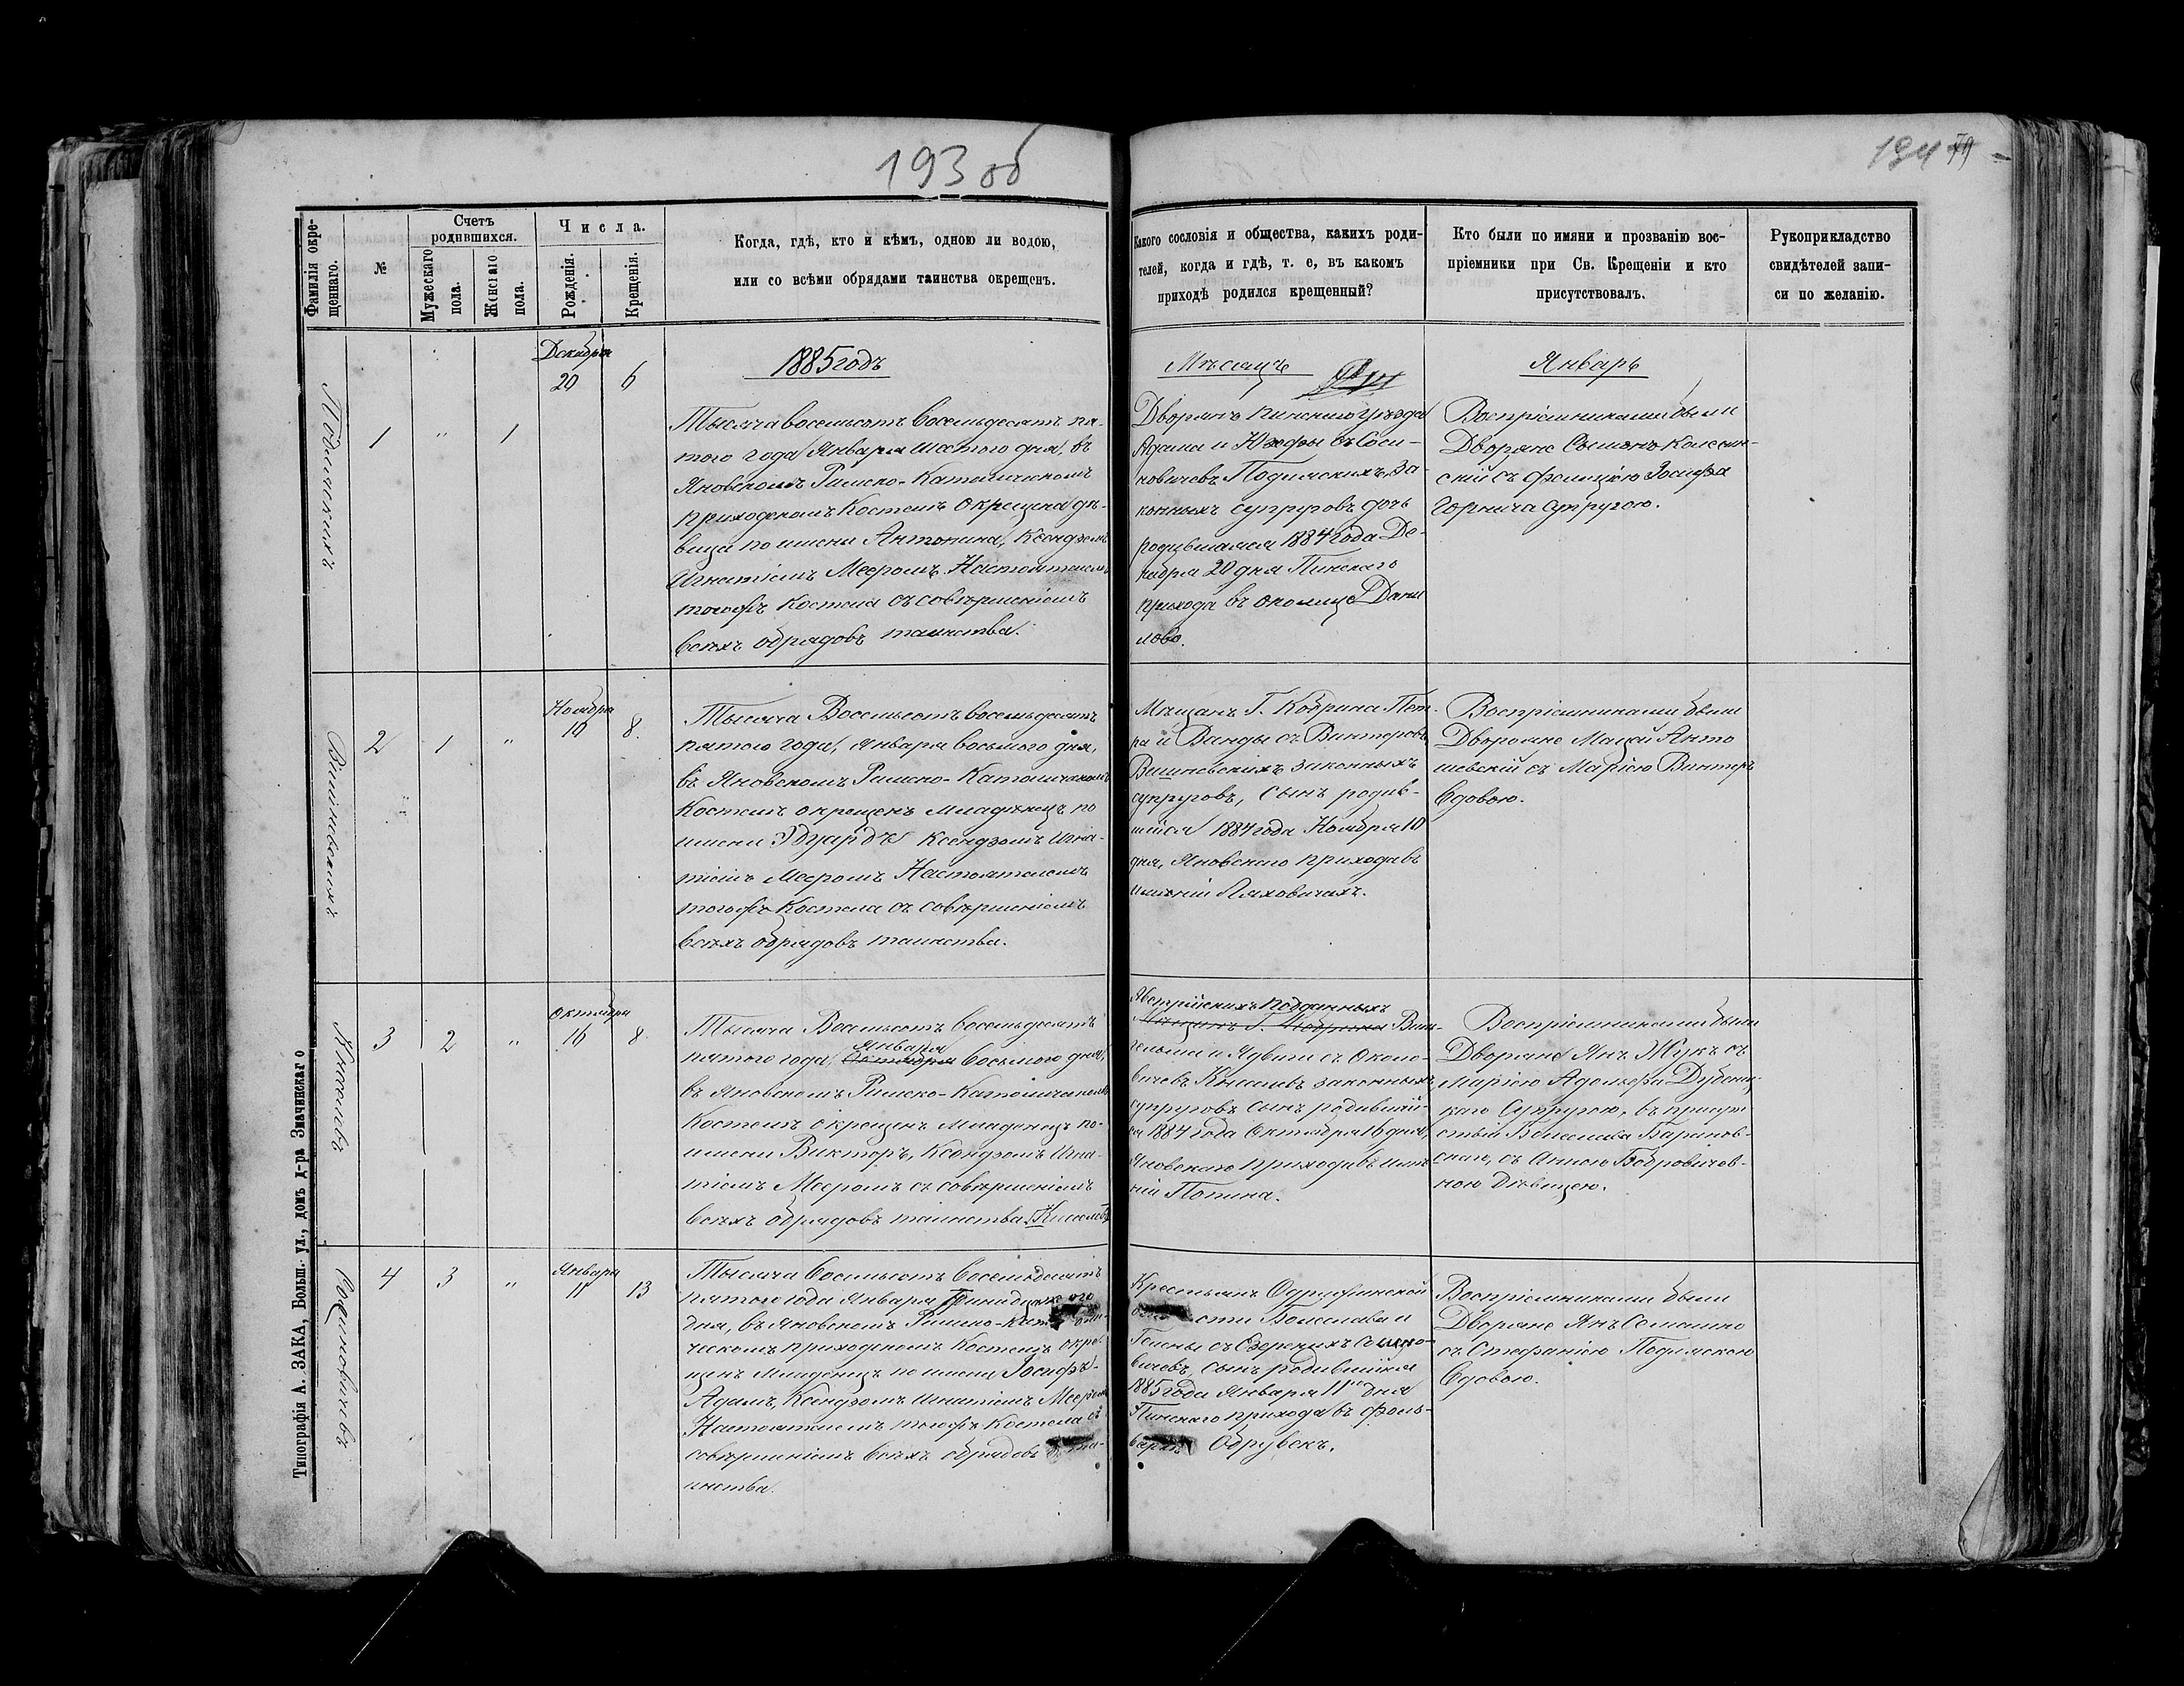 193 об
Фамилія окре-
щеннаго.
№
Счетъ
родившихся.
Мужескаго
пола.
Женскаго
пола.
Числа.
Рожденія.
Крещенія.
Когда, гдѣ, кто и кѣмъ, одною ли водою,
или со всѣми обрядами таинства окрещенъ.
1885 годъ
Подимскихъ
1
"
1
Декабря
20
6
Тысяча восемьсотъ восемьдесятъ пя-
того года Января шестого дня, въ
Яновскомъ Римско-Католическомъ
приходскомъ Костелѣ окрещена дѣ-
вица по имени Антонина, Ксендзомъ
Игнатіемъ Мееромъ Настоятелемъ
тогожъ Костела съ совершеніемъ
всѣхъ обрядовъ таинства.
Вишневскихъ
2
1
"
Ноября
10
8.
Тысяча Восемьсотъ восемьдесятъ
пятого года, Января восьмого дня,
въ Яновскомъ Римско-Католическомъ
Костелѣ окрещенъ младенецъ по
имени Эдуардъ Ксендзомъ Игна-
тіемъ Мееромъ Настоятелемъ
тогожъ Костела съ совершеніемъ
всѣхъ обрядовъ таинства.
3
2
"
Октября
16
8
Тысяча Восемьсотъ восемьдесятъ
Января
пятого года, Октября восьмого дня,
въ Яновскомъ Римско-Католическомъ
Костелѣ окрещенъ младенецъ по-
имени Викторъ, Ксендзомъ Игна-
тіемъ Мееромъ съ совершеніемъ
всѣхъ обрядовъ таинства.
4
3
"
Января
11
13
Тысяча восемьсотъ восемьдесятъ
пятого года Января тринадцатого
дня, въ Яновскомъ Римско-Католи-
ческомъ приходскомъ Костелѣ окре-
щенъ младенецъ по имени Іосифъ-
Адамъ, Ксендзомъ Игнатіемъ Мееромъ
Настоятелемъ тогожъ Костела съ
совершеніемъ всѣхъ обрядовъ та-
инства.
Типографія А. ЗАКА, Больш. ул., домъ д-ра Змачинскаго
194 79
Какого сословія и общества, какихъ роди-
телей, когда и гдѣ, т. е, въ какомъ
приходѣ родился крещенный?
Кто были по имяни и прозванію вос-
пріемники при Св. Крещеніи и кто
присутствовалъ.
Рукоприкладство
свидѣтелей запи-
си по желанію.
Мѣсяцъ
Январь
Дворянъ Пинского Уѣзда
Адама и Юзефы съ Соси-
новичевъ Подимскихъ, за-
конныхъ супруговъ дочь
родившаяся 1884 года Де-
кабря 20 дня Пинскаго
прихода въ околицѣ Дани
лово.
Воспріемниками были
Дворяне
съ Фелиціею Іосифа
Горнича супругою.
Мѣщанъ Г. Кобрина Пет-
ра и Ванды съ Винтеровъ
Вишневскихъ законныхъ
супруговъ, сынъ родив-
шійся 1884 года Ноября 10
дня, Яновского прихода въ
имѣніи Ляховичахъ.
Воспріемниками были
Дворяне Мацей Анто
шевскій съ Маріею Винтеръ
вдовою.
Австрійскихъ подданныхъ
Мѣщанъ Г. Кобрина Виль-
гельма и Ядвиги съ Около-
вичевъ законныхъ
супруговъ сынъ родившій-
ся 1884 года Октября 16 дня,
Яновскаго прихода въ имѣ-
ніи Попина.
Воспріемниками были
Дворяне Янъ Жукъ съ
Маріею Адольфа Дубениц-
каго Супругою, въ присут
ствіи Болеслава Баранов-
скаго, съ Анною Бобровичов-
ною Дѣвицею.
Крестьянъ Одрижинской
Болеслава и
Гелены съ Озерскихъ
сынъ родившійся
1885 года Января 11го дня
Пинского прихода въ фоль-
варкѣ
Воспріемниками были
Дворяне Янъ Семашко
съ Стефаніею Подимскою
вдовою.